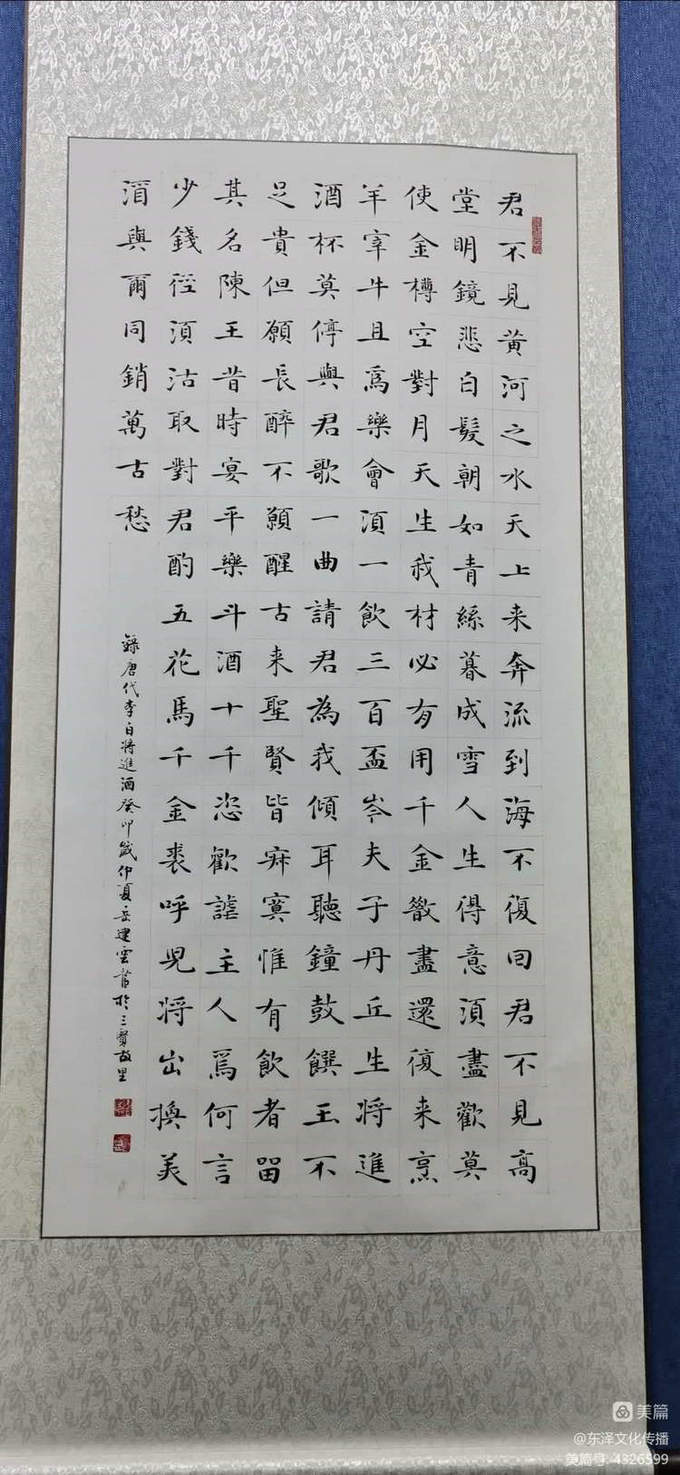 君不見黄河之水天上来奔流到海不復回君不見高
堂明鏡悲白髮朝如青絲暮成雪人生得意須盡歡莫
使金樽空對月天生我材必有用千金散盡還復来烹
羊宰牛且爲樂會須一飲三百盃岑夫子丹丘生将進
酒杯莫停與君歌一曲請君為我傾耳聽鐘鼓饌玉不
足貴但願長醉不願醒古来聖賢皆寂寞惟有飲者留
其名陳王昔時宴平樂斗酒十千恣歡謔主人爲何言
少錢徑須沽取對君酌五花馬千金裘呼兒将出換美
酒與爾同銷萬古愁
錄唐代李白将進酒癸卯歲仲夏岳建雲書於三賢故里
美篇
@东泽文化传播
美篇号:4326599